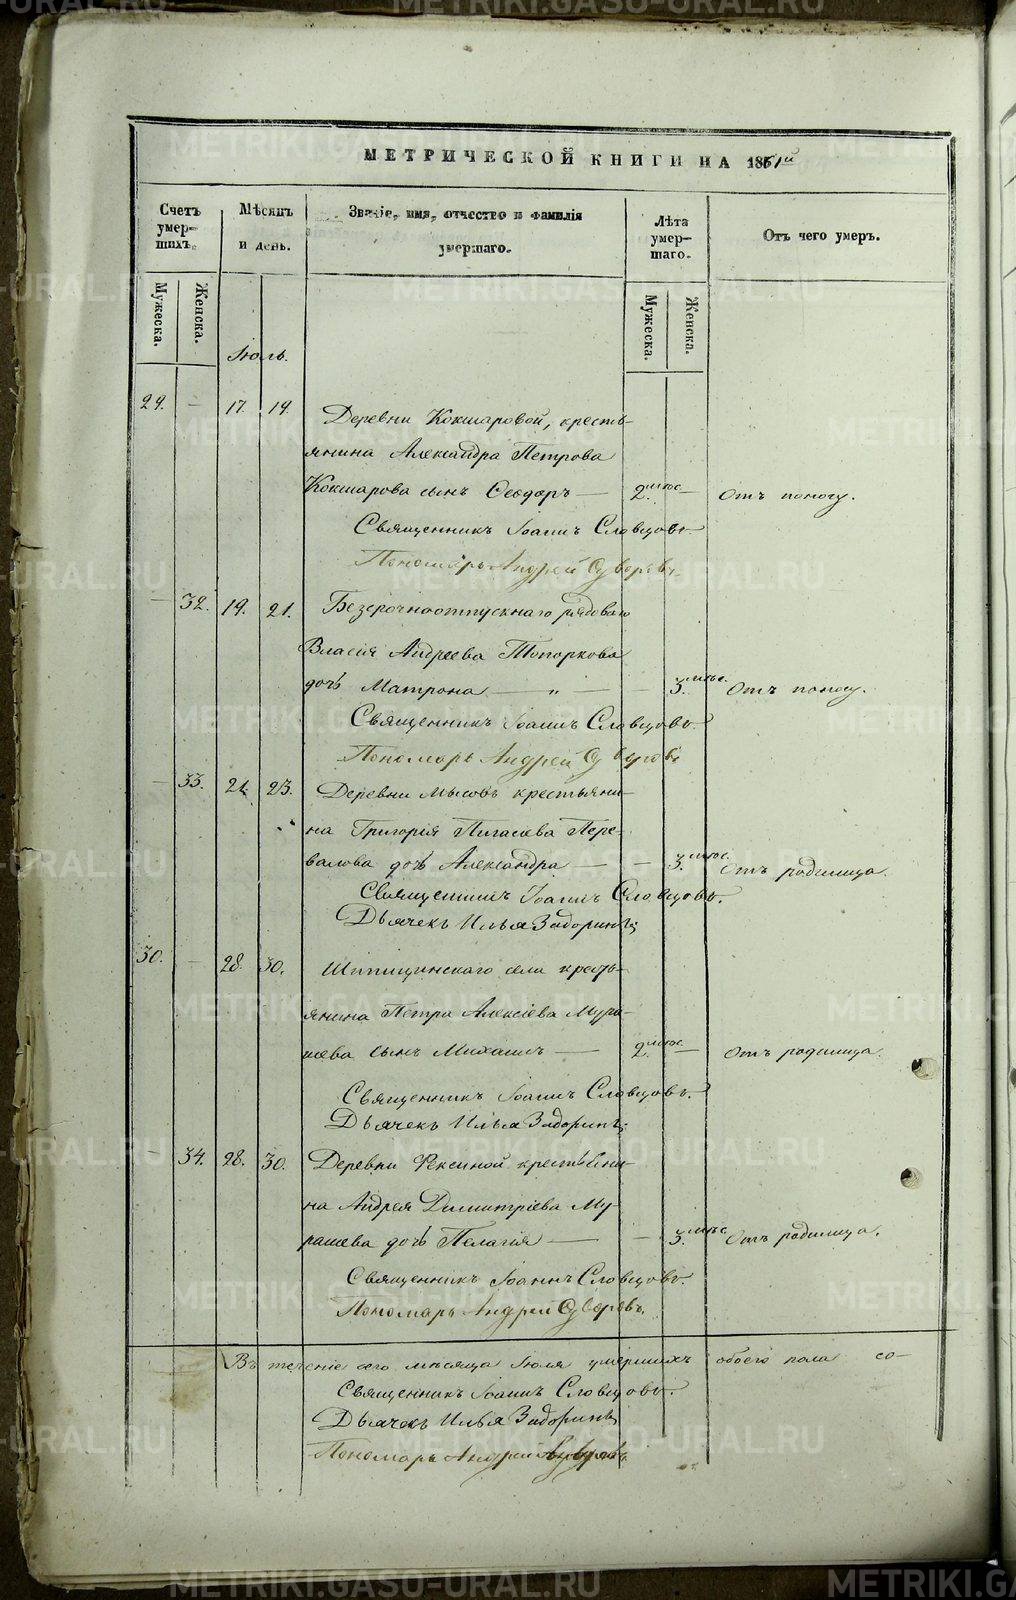 МЕТРИЧЕСКОЙ КНИГИ НА 1861й
Счетъ умершихъ.
Мѣсяцъ и день.
Званіе, имя, отчество и фамилія умершаго.
Лѣта умершаго.
Отъ чего умеръ.
Мужеска.
Женска.
Мужеска.
Женска.
Іюль.
29. — 17. 19. Деревни Кокшаровой, кресть-
янина Александра Петрова
Кокшарова сынъ Ѳеодоръ — 2. мѣс. — Отъ поносу.
Священникъ Іоаннъ Словцовъ.
Пономарь Андрей
— 32. 19. 21. Безсрочноотпускнаго рядоваго
Власія Андреева Топоркова
дочь Матрона — „ — — 3. мѣс. Отъ поносу.
Священникъ Іоаннъ Словцовъ.
Пономарь Андрей
— 33. 21. 23. Деревни Мысовъ крестьяни-
на Григорія Пигасіева Пере-
валова дочь Александра — — 3. мѣс. Отъ родимца.
Священникъ Іоаннъ Словцовъ.
Дьячекъ Илья Задоринъ;
30. — 28. 30. Шипицинскаго села кресть-
янина Петра Алексіева Мура-
шева сынъ Михаилъ — 2. мѣс. — Отъ родимца.
Священникъ Іоаннъ Словцовъ.
Дьячекъ Илья Задоринъ;
— 34. 28. 30. Деревни Фексиной крестьяни-
на Андрея Димитріева Му-
рашева дочь Пелагія — — 3. мѣс. Отъ родимца.
Священникъ Іоаннъ Словцовъ.
Пономарь Андрей
Въ теченіе сего мѣсяца Іюля умершихъ обоего пола со-
Священникъ Іоаннъ Словцовъ.
Дьячекъ Илья Задоринъ;
Пономарь Андрей
METRIKI.GASO-URAL.RU